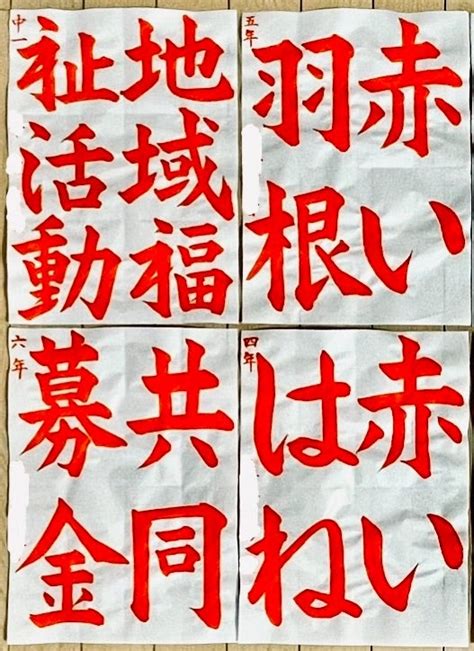 地域福
祉活動
中一
赤い
羽根
五年
共同
募金
六年
赤い
はね
四年